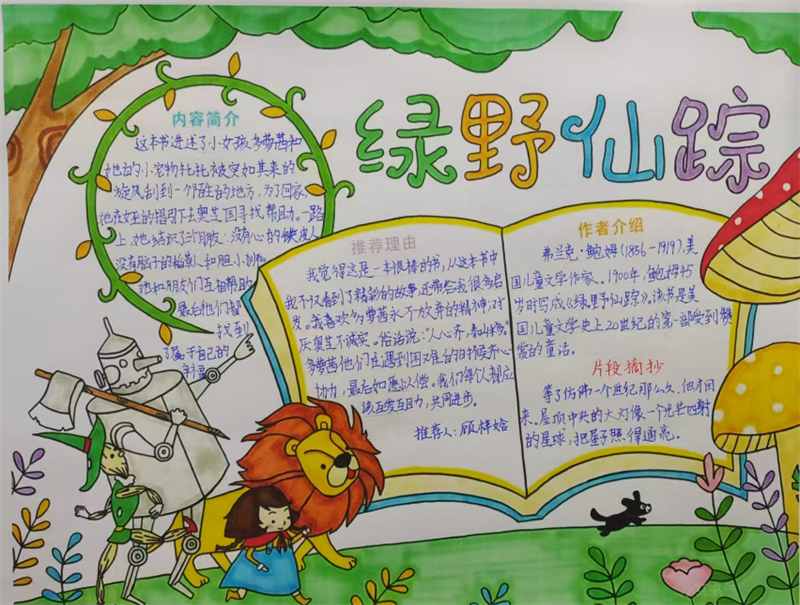 绿野仙踪
内容简介
这本书讲述了小女孩多萝茜和
她的小宠物托托被突如其来的
旋风刮到一个陌生的地方,为了回家,
她在女巫的指引下去奥芝国寻找帮助。一路
上,她结识了三个朋友:没有心的铁皮人
没有脑子的稻草人和胆小狮。
她和朋友们互相帮助
最后他们都
找到
了属于自己的
幸福
推荐理由
我觉得这是一本很棒的书,从这本书中
我不仅看到了精彩的故事,还带给我很多启
发。我喜欢多萝茜永不放弃的精神,讨
厌奥芝不诚实。俗话说:“人心齐,泰山移”。
多萝茜他们在遇到困难的时候齐心
协力,最后如愿以偿。我们每个人都应
该互爱互助,共同进步。
推荐人:顾梓
作者介绍
弗兰克·鲍姆(1856-1919),美
国儿童文学作家。1900年,鲍姆45
岁时写成《绿野仙踪》。该书是美
国儿童文学史上20世纪的第一部受到赞
赏的童话。
片段摘抄
等了仿佛一个世纪那么久,他才回
来,屋顶中央的大灯像一个光芒四射
的星球,把屋子照得通亮。